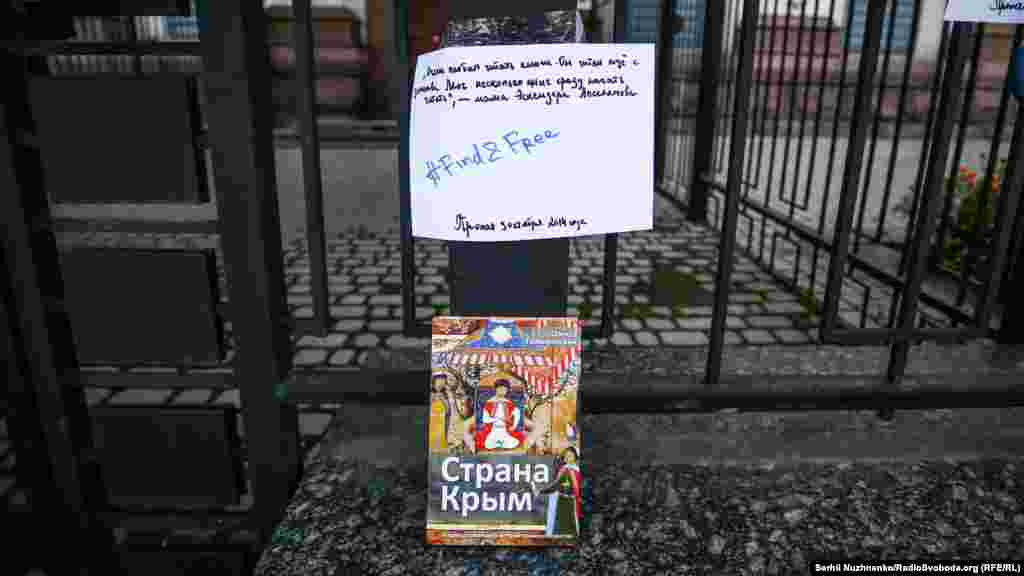 „Он любил читать книги. Он читал ещё с
Мог несколько книг сразу начать
читать", — мама Эскендера Апселямова
#Find&Free
Пропал 3 октября 2014 года
Пропал
Страна
Крым
Serhii Nuzhnenko/RadioSvoboda.org (RFE/RL)